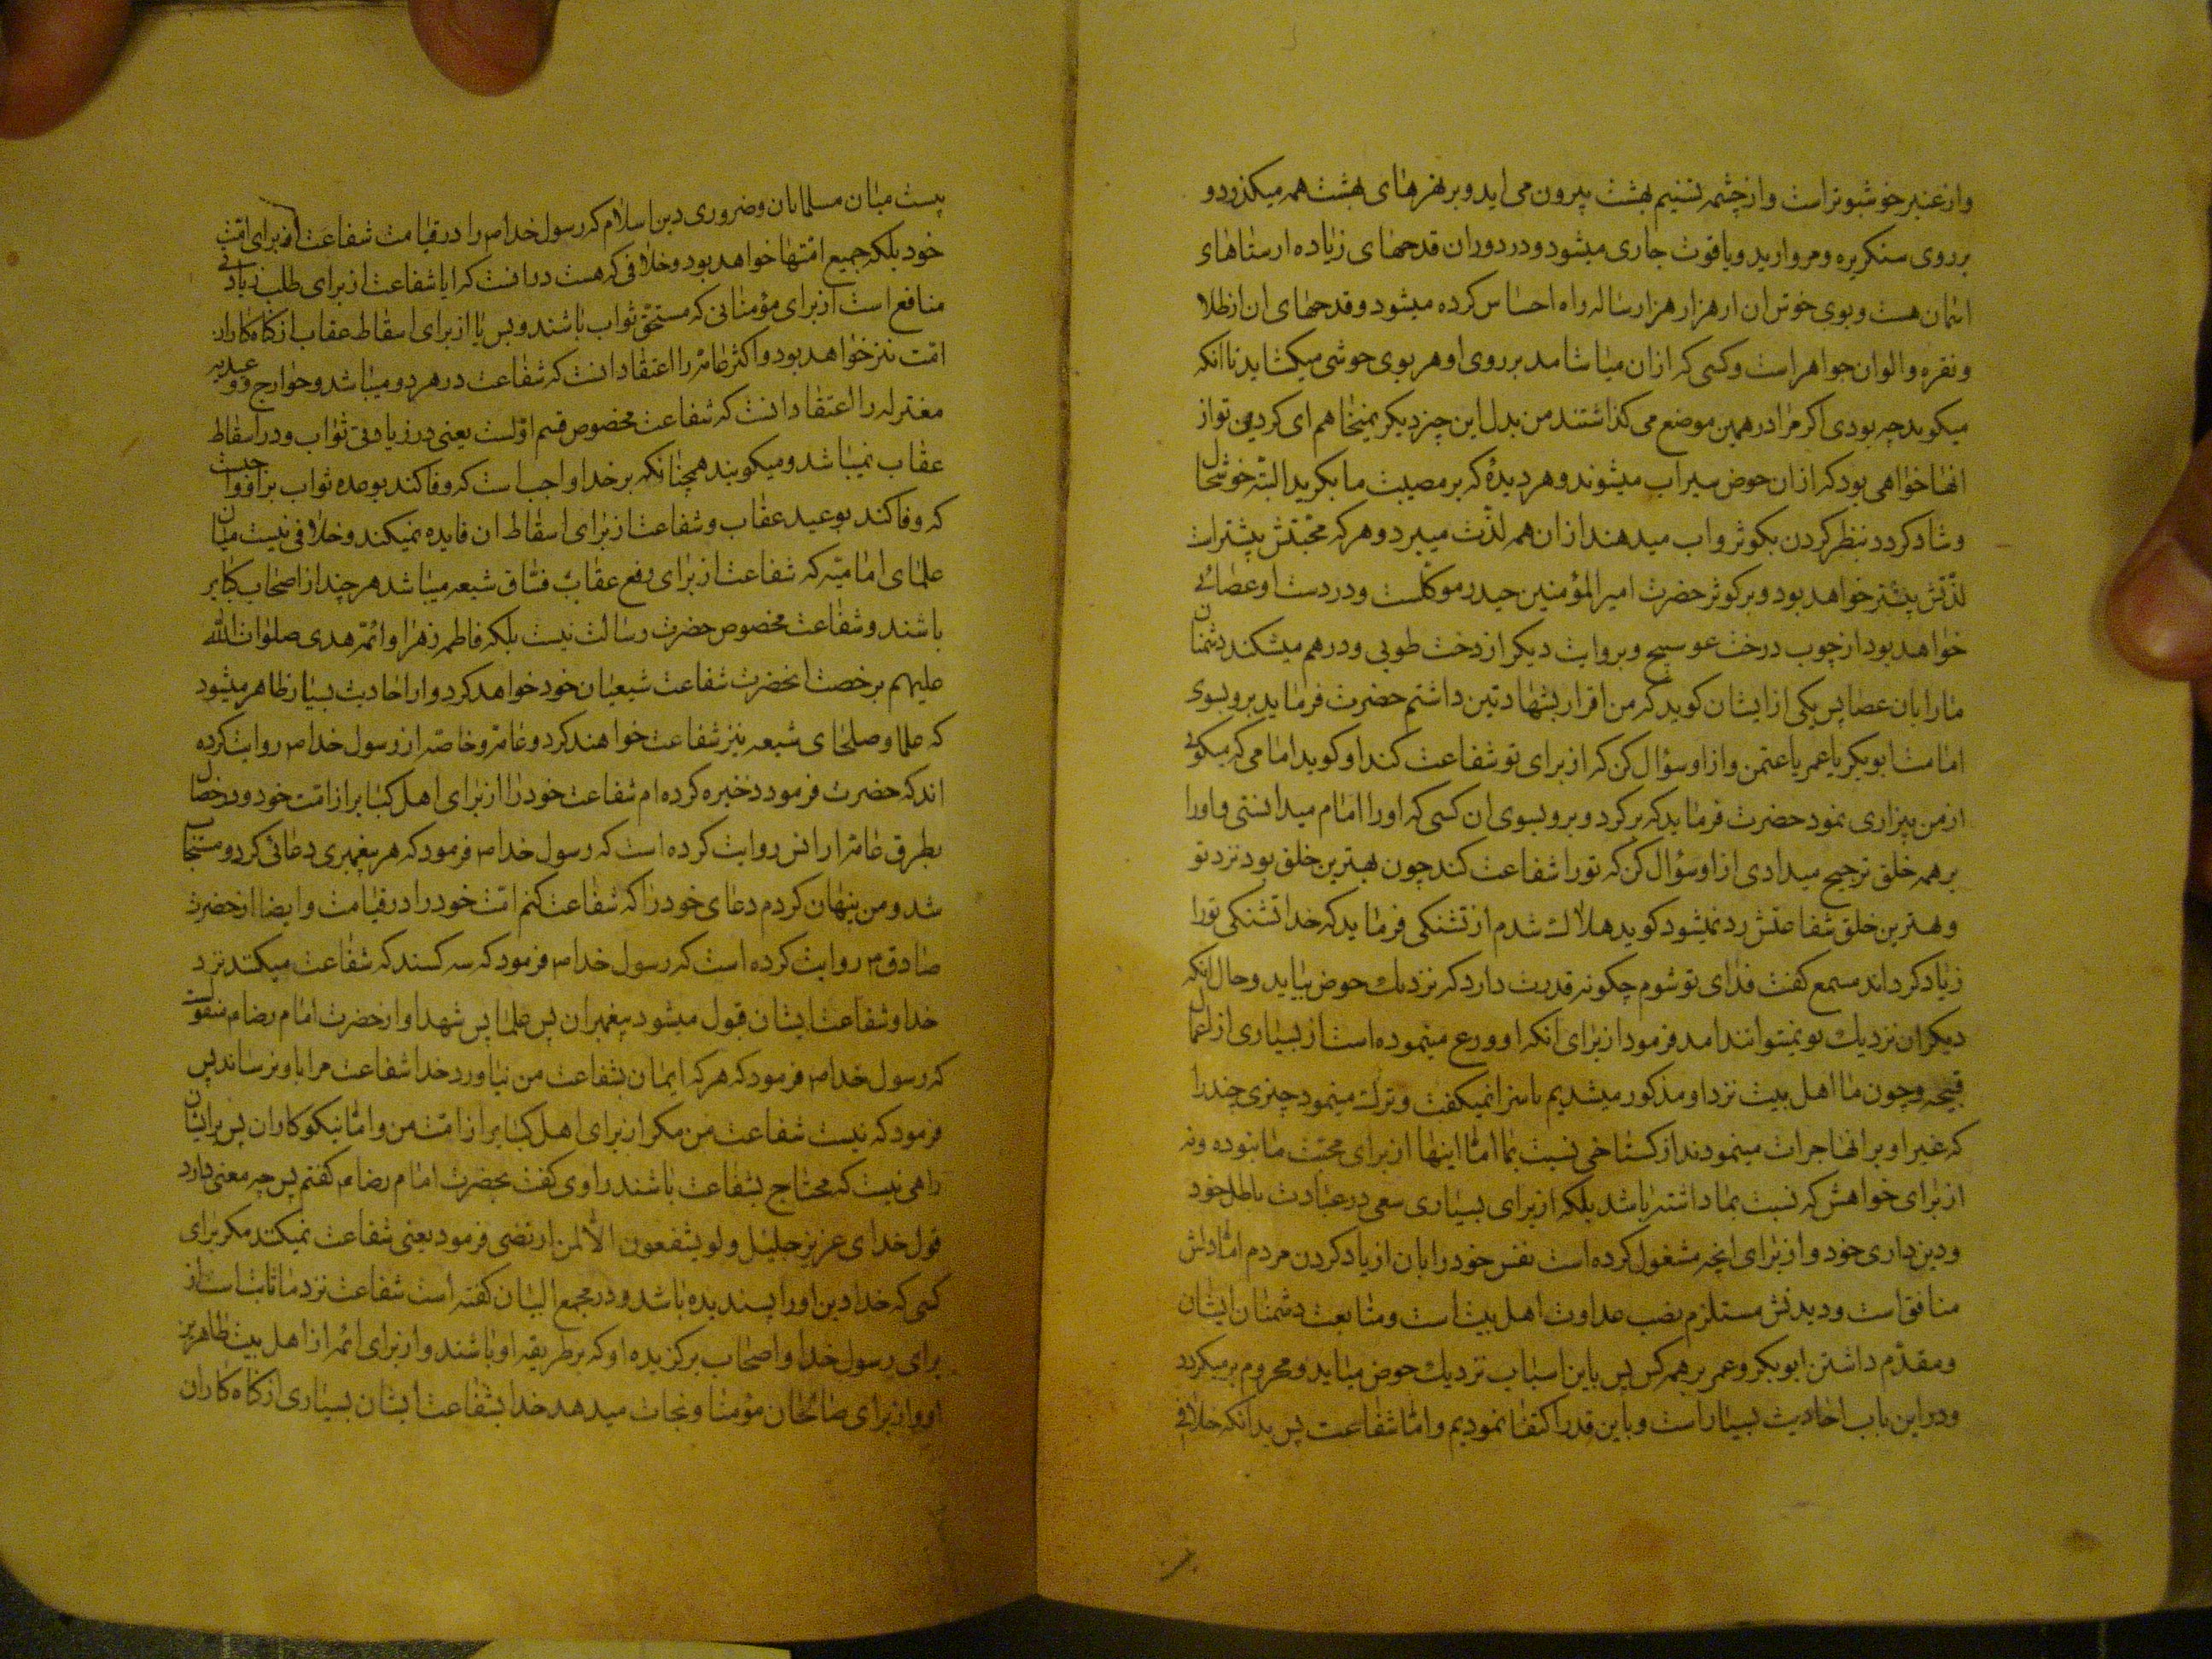 واز عنبر خوشبوتر است واز چشمه تسنیم بهشت بیرون می اید و بر نهرهای بهشت همه میکذرد و
بر روی سنکریزه ومروارید ویاقوت جاری میشود ودر دوران قدحهای زیاده ارستاهای
اسمان هست وبوی خوش ان ار هزار هزار ساله راه احساس کرده میشود وقدحهای ان از طلا
و نقره والوان جواهر است وکسی که ازان میاشامد بر روی او هر بوی خوشی میکشاید تا انکه
میکوید چه بودی اکر مرا در همین موضع می کذاشتند من بدل این چیز دیکر نمیخواهم ای کردین تو از
انها خواهی بود که ازان حوض سیراب میشوند وهر دیدۀ که بر مصیبت ما بکرید البته خوشحال
وشاد کردد بنظر کردن بکوثر واب میدهند ازان همه لذّت میبرد وهر که محبّتش بیشتر است
لذّتش بیشتر خواهد بود وبر کوثر حضرت امیرالمؤمنین حیدر موکّلست ودر دست او عصائی
خواهد بود از چوب درخت عوسج وبروایت دیکر از درخت طوبی ودرهم میشکند دشمنان
مارا بان عصا پس یکی از ایشان کوید که من اقرار بشهادتین داشتم حضرت فرماید برو بسوی
امامت ابوبکر یا عمر یا عثمن واز او سؤال کن که از برای تو شفاعت کند او کوید امامی که میکوئی
از من بیزاری نمود حضرت فرماید که بر کرد وبرو بسوی ان کسی که اورا امام میدانستی واورا
بر همه خلق ترجیح میدادی از او سؤال کن که تورا شفاعت کند چون بهترین خلق بود نزد تو
وبهترین خلق شفاعتش رد نمیشود کوید هلاك شدم از تشنکی فرماید که خدا تشنکی تورا
زیاد کرداند مسمع کفت فدای تو شوم چکونه قدرت دارد که نزدیك حوض بیاید وحال انکه
دیکران نزدیك تو نمیتوانند امد فرمود از برای انکه او ورع مینموده است از بسیاری از اعمال
قبیحه وچون ما اهل بیت نزد او مذکور میشدیم ناسزا نمیکفت وترك مینمود چیزی چند را
که غیر او بر انها جرات مینمودند از کستاخی نسبت بما امّا اینها از برای محبّت ما نبوده ونه
از برای خواهش که نسبت بما داشته باشد بلکه از برای بسیاری سعی در عبادت باطل خود
ودین داری خود واز برای انچه مشغول کرده است نفس خود را بان از یاد کردن مردم امّا دلش
منافق است ودیدنش مستلزم نصب عداوت اهل بیت است ومتابعت دشمنان ایشان
ومقدّم داشتن ابوبکر وعمر بر همه کس پس باین اسباب نزدیك حوض میاید ومحروم بر میکردد
ودر این باب احادیث بسیار است وباین قدر اکتفا نمودیم وامّا شفاعت پس بدانکه خلافی
نیست میان مسلمانان وضروری دین اسلام که رسول خدا ص را در قیامت شفاعت از برای امّت
خود بلکه جمیع امّتها خواهد بود وخلافی که هست در انست که ایا شفاعت از برای طلب زیادتی
منافع است از برای مؤمنانی که مستحق ثواب باشند وبس یا از برای اسقاط عقاب از کناه کاران
امّت نیز خواهد بود واکثر عامّه را اعتقاد انست که شفاعت در هر دو میباشد وخوارج و وعیدیه
معتزله را اعتقاد انست که شفاعت مخصوص قسم اوّلست یعنی در زیادتی ثواب ودر اسقاط
عقاب نمیباشد ومیکویند همچنانکه بر خدا واجب است که وفا کند بوعده ثواب بر او واجبست
که وفا کند بوعید عقاب وشفاعت از برای اسقاط ان فایده نمیکند وخلافی نیست میان
علمای امامیّه که شفاعت از برای رفع عقاب فسّاق شیعه میباشد هر چند از اصحاب کبایر
باشند وشفاعت مخصوص حضرت رسالت نیست بلکه فاطمه زهرا وائمّه هدی صلوات الله
علیهم برخصت انحضرت شفاعت شیعیان خود خواهد کرد واز احادیث بسیار ظاهر میشود
که علما وصلحای شیعه نیز شفاعت خواهند کرد وعامّه وخاصّه از رسول خدا ص روایت کرده
اند که حضرت فرمود ذخیره کرده ام شفاعت خود را از برای اهل کبایر از امّت خود ودر خصال
بطرق عامّه از انس روایت کرده است که رسول خدا ص فرمود که هر پیغمبری دعائی کرد ومستجاب
شد ومن پنهان کردم دعای خود را که شفاعت کنم امّت خود را در قیامت وایضا از حضرت
صادق ع روایت کرده است که رسول خدا ص فرمود که سه کسند که شفاعت میکنند نزد
خدا وشفاعت ایشان قبول میشود پیغمبران پس علما پس شهدا واز حضرت امام رضا ع منقولست
که رسول خدا ص فرمود که هر که ایمان بشفاعت من نیاورد خدا شفاعت مرا باو نرساند پس
فرمود که نیست شفاعت من مکر از برای اهل کبایر از امّت من وامّا نیکوکاران پس بر ایشان
راهی نیست که محتاج بشفاعت باشند راوی کفت بحضرت امام رضا ع کفتم پس چه معنی دارد
قول خدای عزیز جلیل ولو یشفعون الّا لمن ارتضی فرمود یعنی شفاعت نمیکند مکر برای
کسی که خدا دین اورا پسندیده باشد ودر مجمع البیان کفته است شفاعت نزد ما ثابت است از
برای رسول خدا واصحاب برکزیده او که بر طریقه او باشند واز برای ائمه از اهل بیت طاهرین
او واز برای صالحان مؤمنان ونجات میدهد خدا بشفاعت ایشان بسیاری از کناه کاران